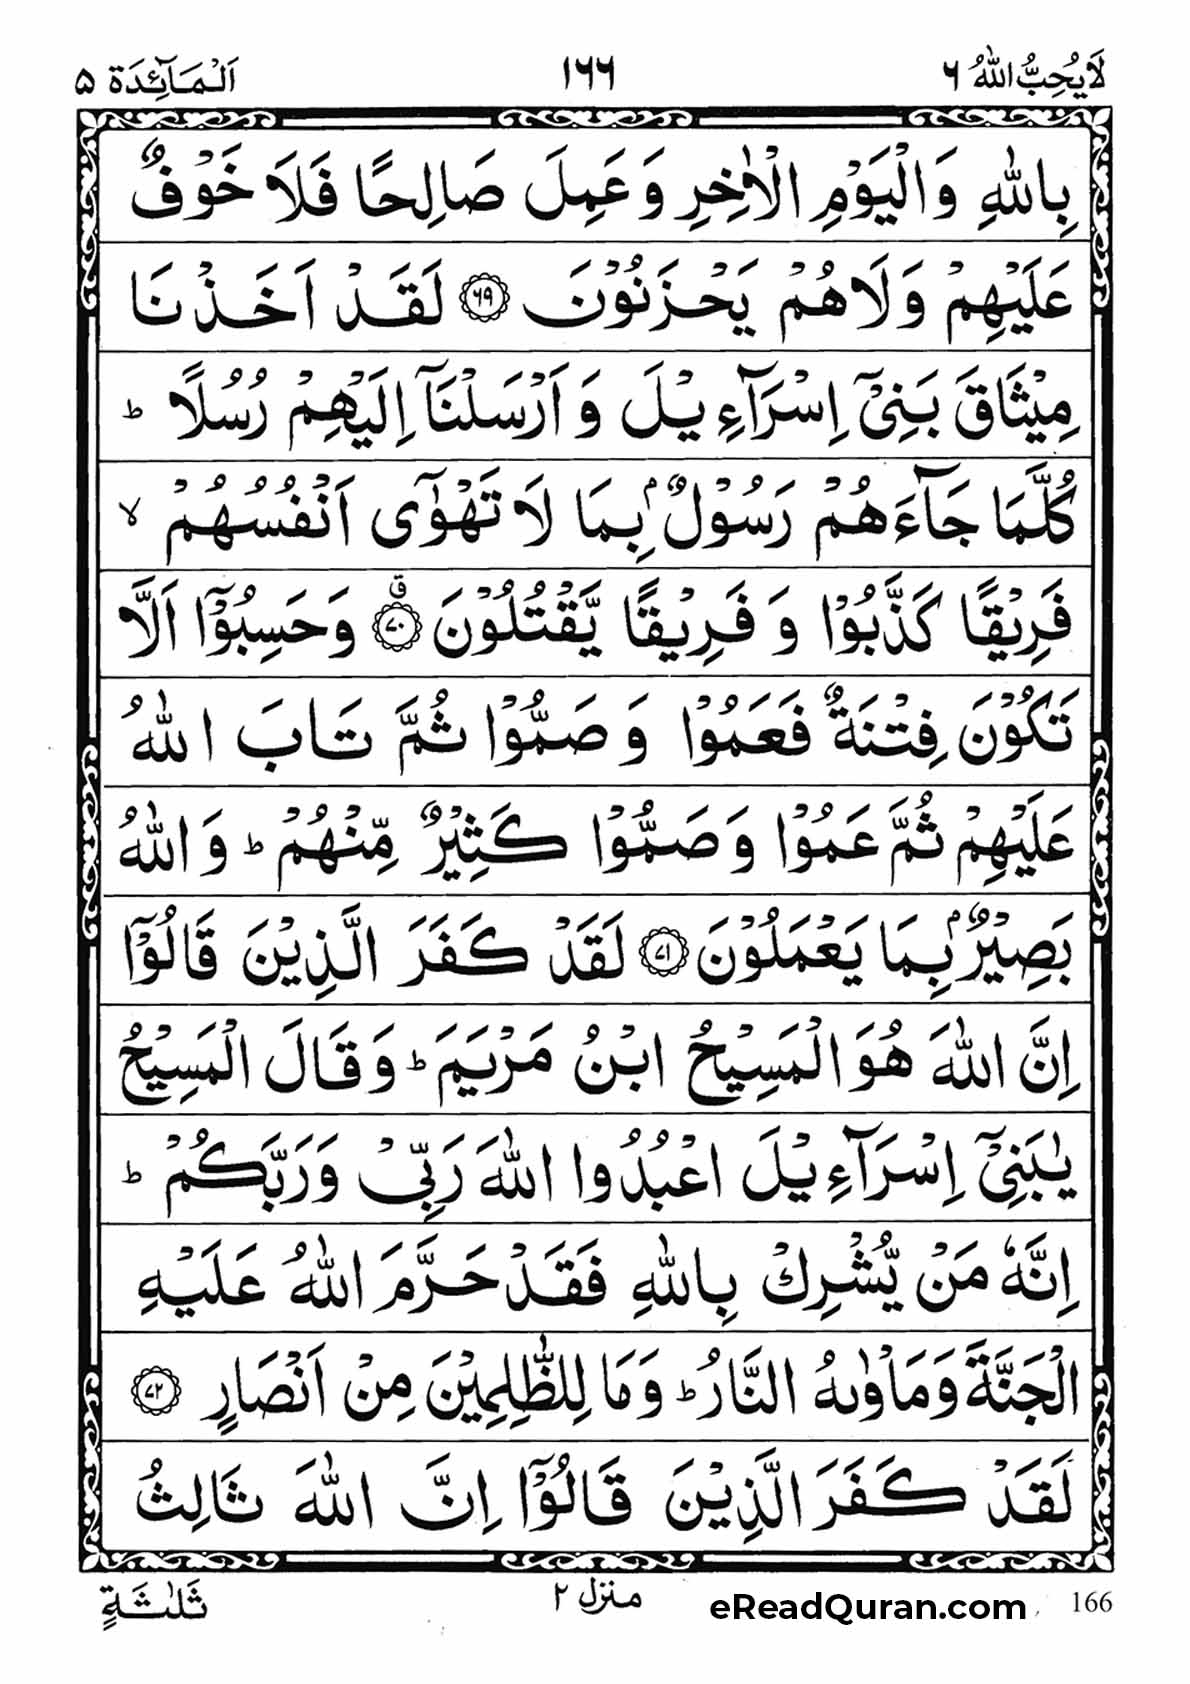 لَا يُحِبُّ اللّٰهُ ٦ ١٦٦ اَلْمَآئِدَة ٥
بِاللّٰهِ وَالْيَوْمِ الْاٰخِرِ وَعَمِلَ صَالِحًا فَلَا خَوْفٌ
عَلَيْهِمْ وَلَا هُمْ يَحْزَنُوْنَ ٦٩ لَقَدْ اَخَذْنَا
مِيْثَاقَ بَنِيْٓ اِسْرَآءِيْلَ وَاَرْسَلْنَآ اِلَيْهِمْ رُسُلًا ؕ
كُلَّمَا جَآءَهُمْ رَسُوْلٌۢ بِمَا لَا تَهْوٰٓى اَنْفُسُهُمْ ۙ
فَرِيْقًا كَذَّبُوْا وَفَرِيْقًا يَّقْتُلُوْنَ ٧٠ ق وَحَسِبُوْٓا اَلَّا
تَكُوْنَ فِتْنَةٌ فَعَمُوْا وَصَمُّوْا ثُمَّ تَابَ اللّٰهُ
عَلَيْهِمْ ثُمَّ عَمُوْا وَصَمُّوْا كَثِيْرٌ مِّنْهُمْ ؕ وَاللّٰهُ
بَصِيْرٌۢ بِمَا يَعْمَلُوْنَ ٧١ لَقَدْ كَفَرَ الَّذِيْنَ قَالُوْٓا
اِنَّ اللّٰهَ هُوَ الْمَسِيْحُ ابْنُ مَرْيَمَ ؕ وَقَالَ الْمَسِيْحُ
يٰبَنِيْٓ اِسْرَآءِيْلَ اعْبُدُوا اللّٰهَ رَبِّيْ وَرَبَّكُمْ ؕ
اِنَّهٗ مَنْ يُّشْرِكْ بِاللّٰهِ فَقَدْ حَرَّمَ اللّٰهُ عَلَيْهِ
الْجَنَّةَ وَمَاْوٰىهُ النَّارُ ؕ وَمَا لِلظّٰلِمِيْنَ مِنْ اَنْصَارٍ ٧٢
لَقَدْ كَفَرَ الَّذِيْنَ قَالُوْٓا اِنَّ اللّٰهَ ثَالِثُ
ثَلٰثَةٍ منزل ٢ eReadQuran.com 166